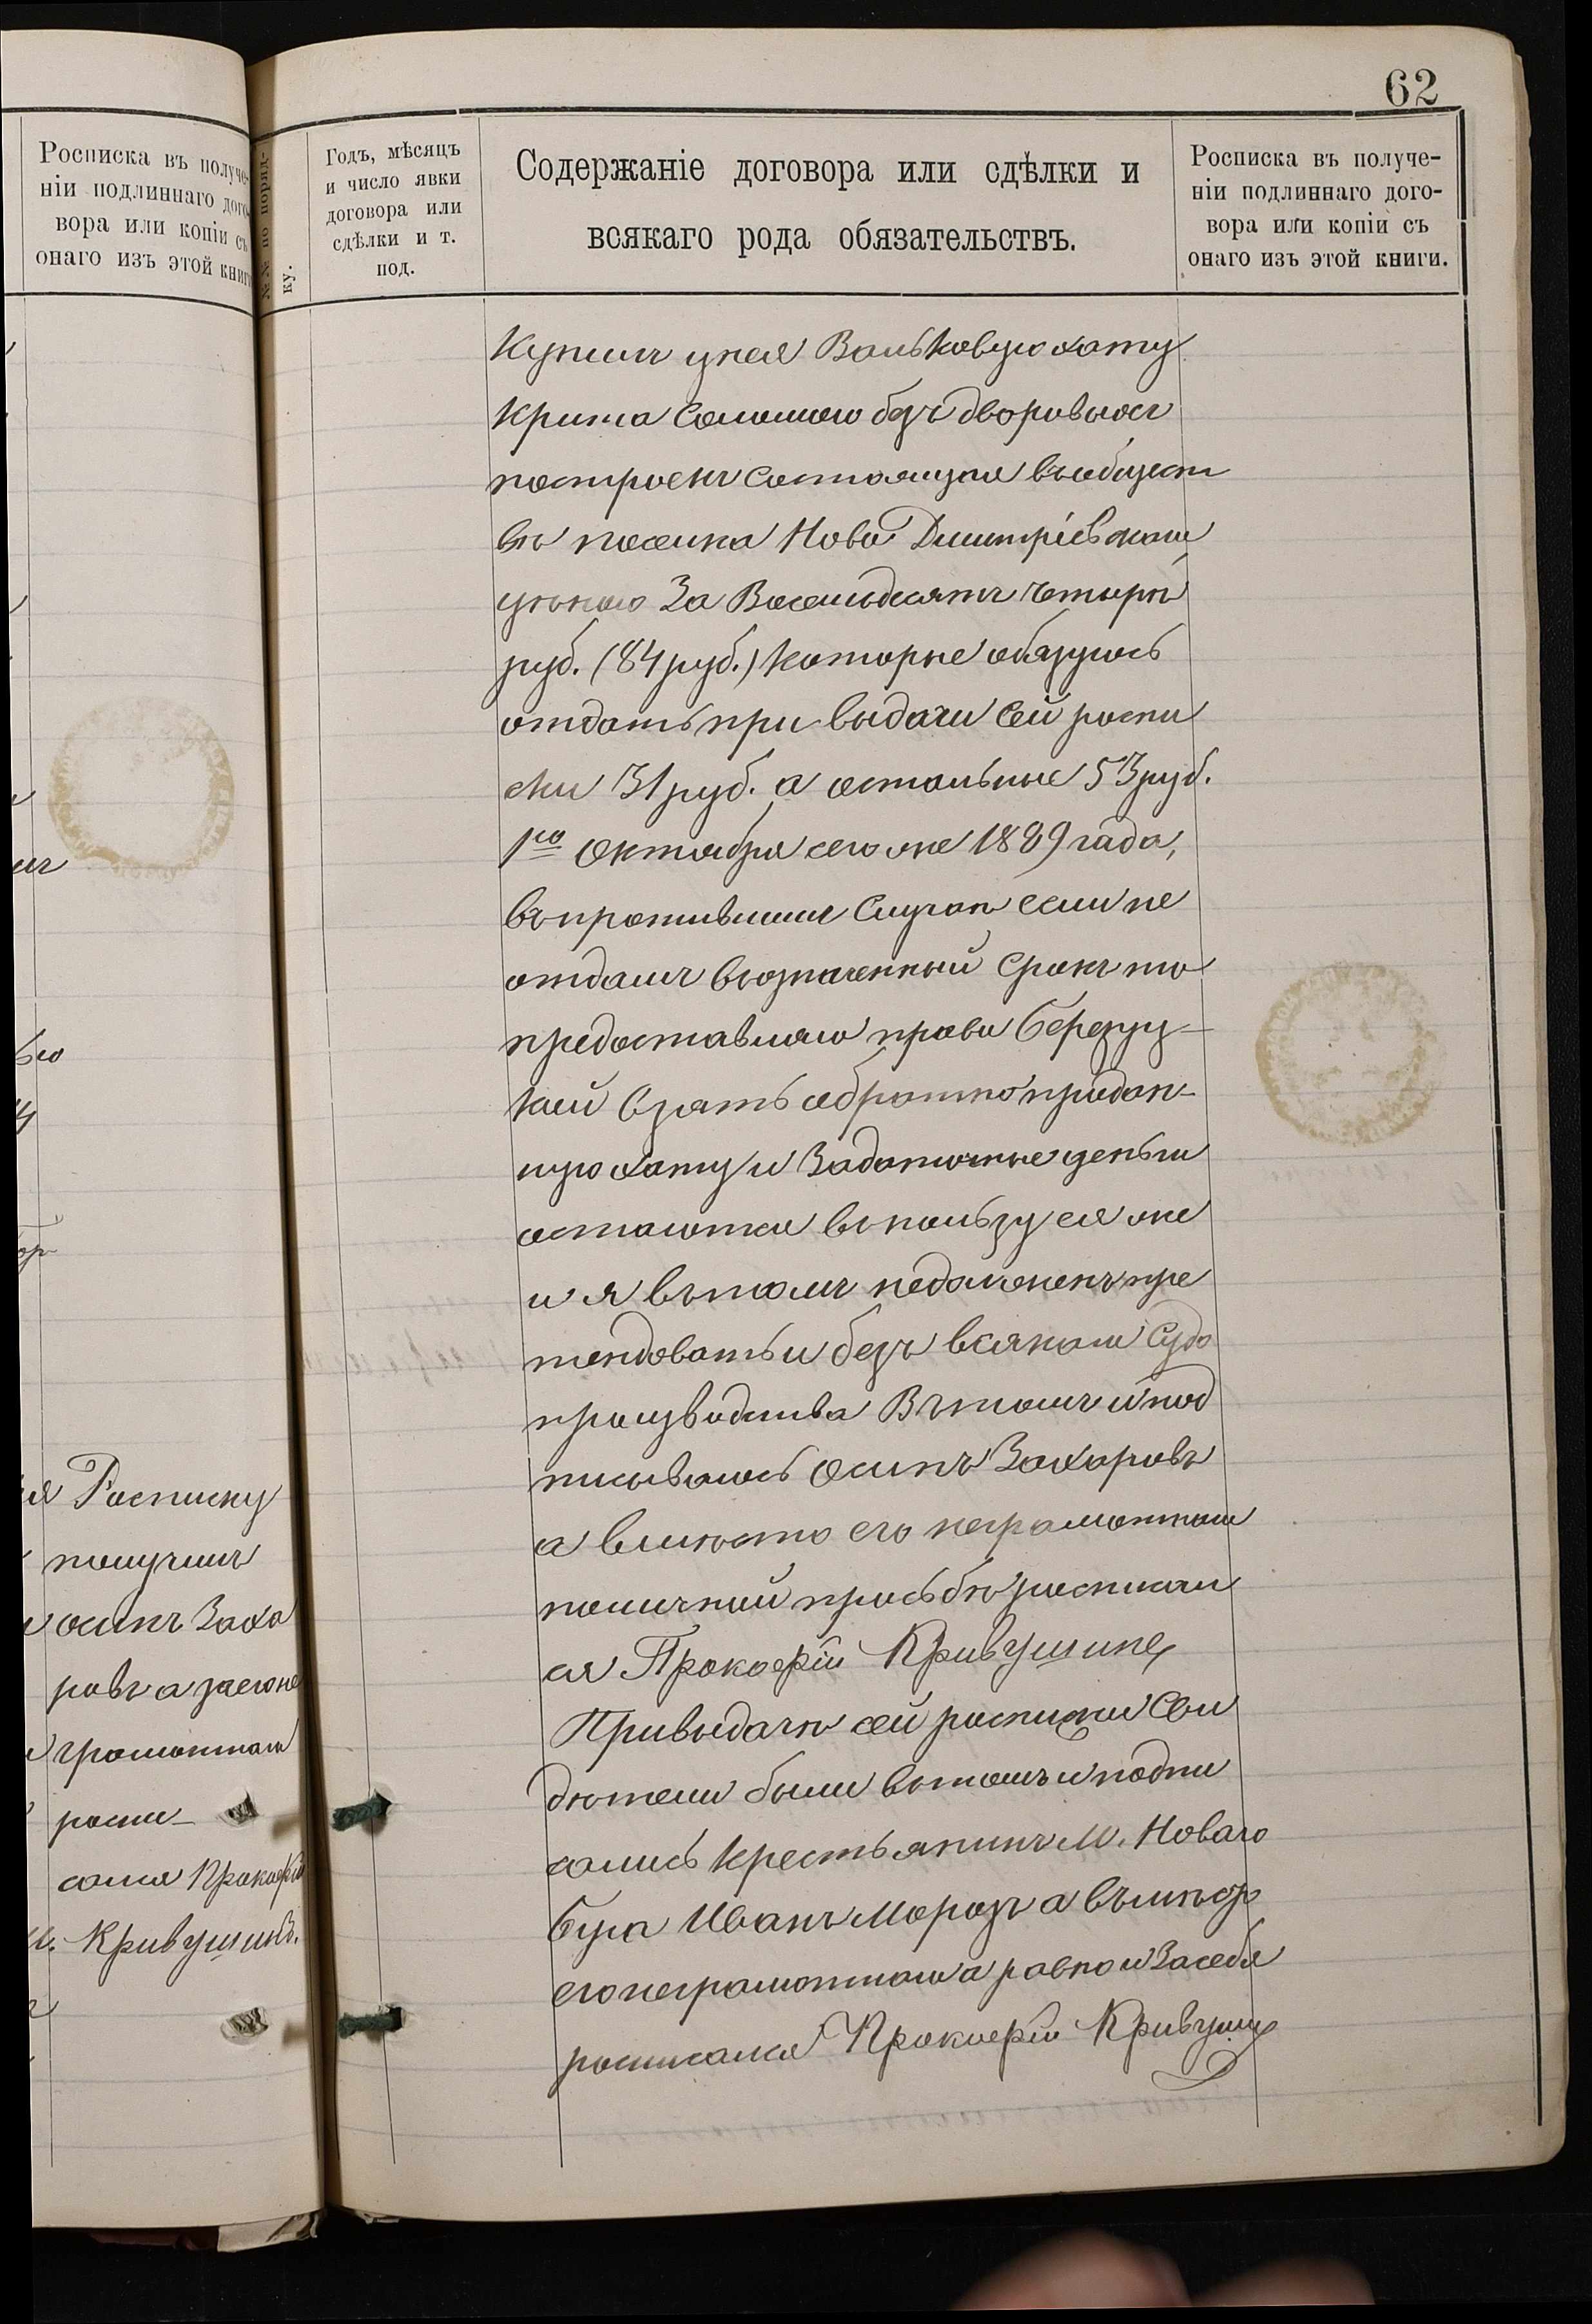 62
Росписка въ получе-
ніи подлиннаго дого-
вора или копіи съ
онаго изъ этой книги
№№ по поряд-
ку.
Годъ, мѣсяцъ
и число явки
договора или
сдѣлки и т.
под.
Содержаніе договора или сдѣлки и
всякаго рода обязательствъ.
Росписка въ получе-
ніи подлиннаго дого-
вора или копіи съ
онаго изъ этой книги.
я Росписку
получилъ
осипъ Заха
ровъ а за его не
грамотнаго
роспи-
сался Прокофій
Кривушинъ.
Купилъ у нея Вальковую хату
крита Соломою безъ дворовыхъ
построекъ Состоящая въ общест
вѣ поселка Ново Дмитріевскаго
цѣною За Восемьдесятъ четыри
руб. (84 руб.) которые обязуюсь
отдать при выдачи Сей роспи
ски 31 руб. а остальные 53 руб.
1го Октября сего же 1889 года,
въ противнимъ Случаѣ если не
отдамъ въозначенный Срокъ то
предоставляю права Березуц-
кай взять обратно придан-
ную хату и Задаточные деньги
остаются въ пользу ея же
и я въ томъ недолженъ пре
тендовать и безъ всякаго Судо
производства Въ томъ и под
писываюсь осипъ Захаровъ
а вмѣсто его неграмотнаго
поличной прозьбѣ росписал
ся Прокофій Кривушинъ
Привыдачѣ сей росписки Сви
дѣтели были въ томъ и подпи
сались Крестьянинъ М. Новаго
буга Иванъ Морозъ а въмѣсто
его неграмотнаго а равно и За себя
росписался Прокофій Кривушинъ